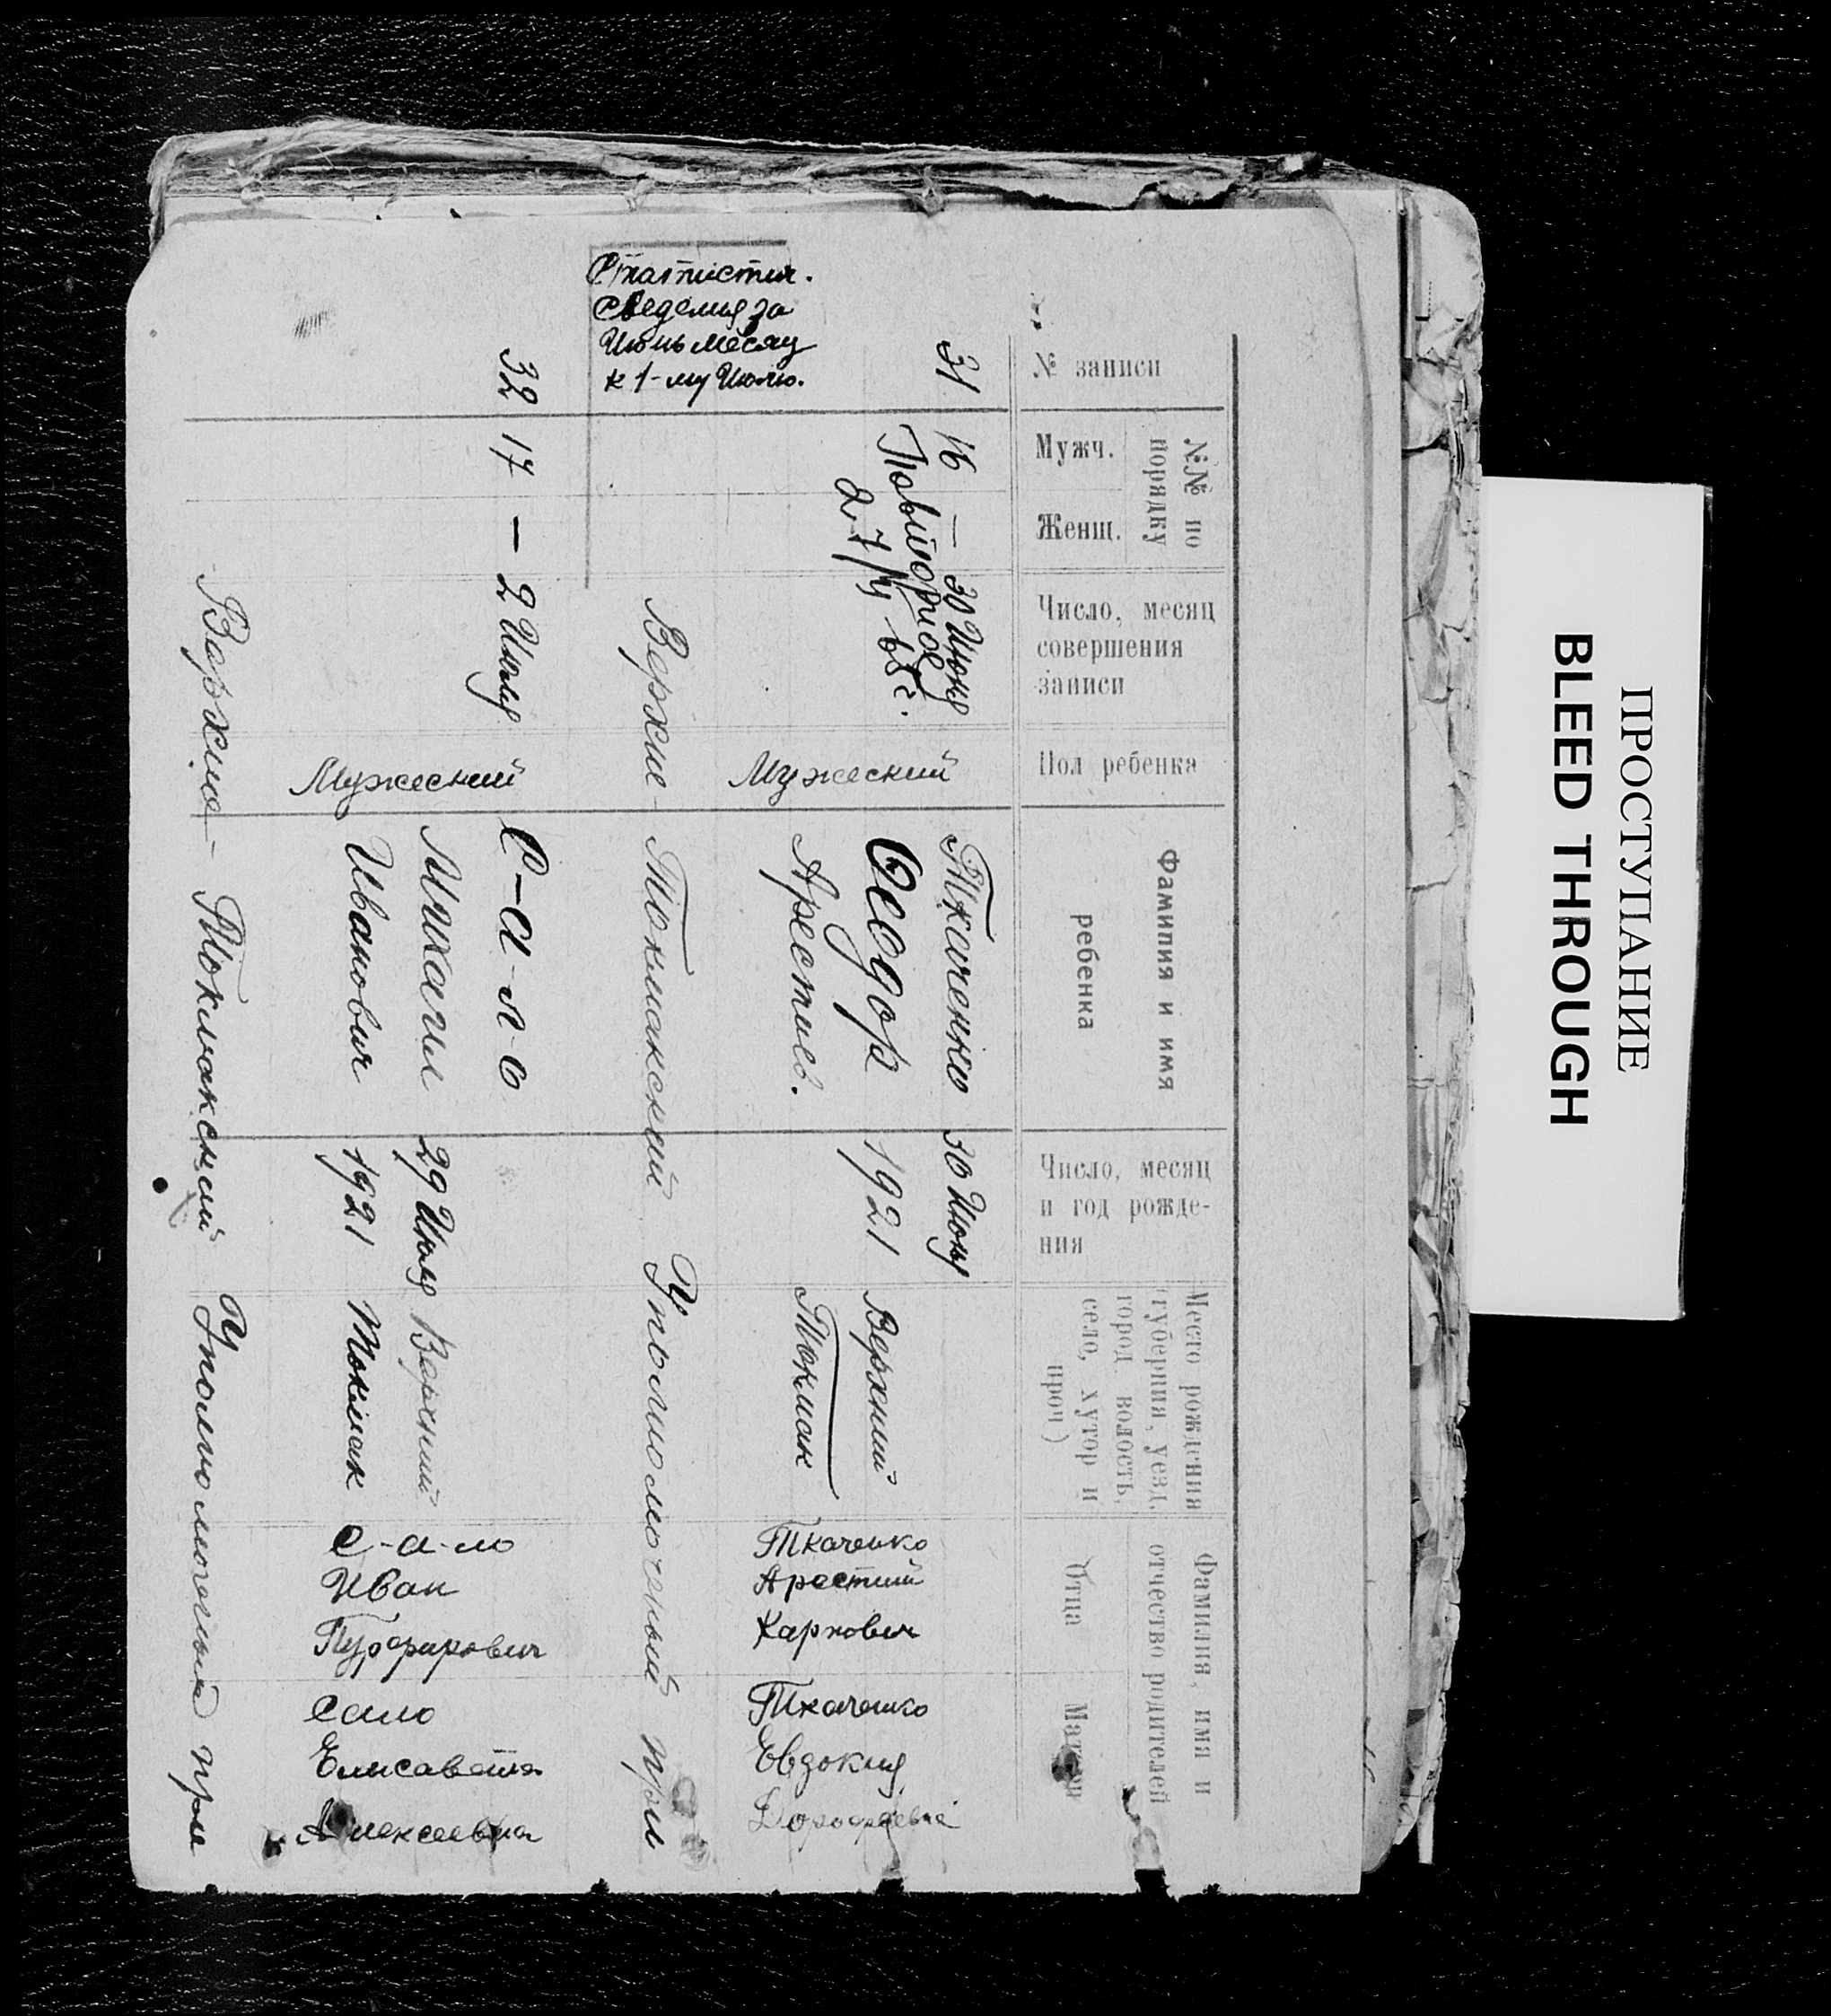 № записи
№№ по
порядку
Мужч.
Женщ.
Число, месяц
совершения
записи
Пол ребенка
Фамилия и имя
ребенка
Число, месяц
и год рожде-
ния
Место рождения
(губерния, уезд,
город волость,
село, хутор и
проч)
Фамилия, имя и
отчество родителей
Отца
Матери
31
16
—
30 Июня
Повторное
27/IV 65г.
Мужеский
Ткаченко
Феодор
Арестиев.
30 Июня
1921
Верхний
Токмак
Ткаченко
Арестий
Карпович
Ткаченко
Евдокия
Дорофеевна
Статистич.
Сведения за
Июнь месяц
к 1-му Июлю.
Верхне-Токмакский Уполномоченый при
32
17
—
2 Июля
Мужеский
С-а-л-о
Михаил
Иванович
29 Июня
1921
Верхний
Токмак
С-а-ло
Иван
Пурфирович
Сало
Елисавета
Алексеевна
Верхне-Токмакский Уполномоченый при
ПРОСТУПАНИЕ
BLEED THROUGH